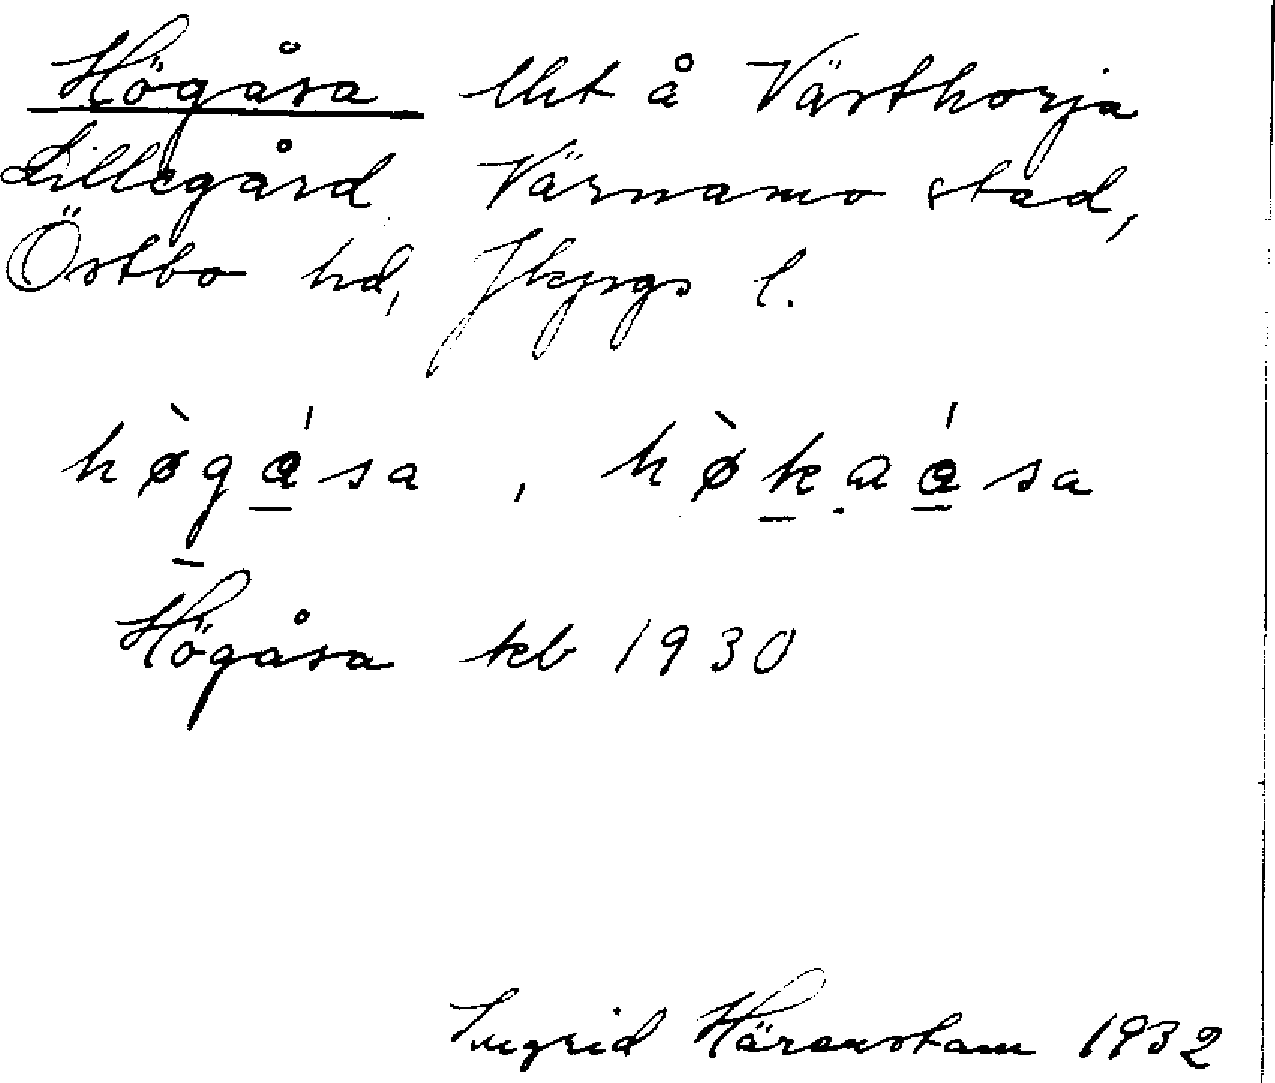 Högåsa lht å Västhorja
Lillegård Värnamo stad,
Östbo hd, Jkpgs l.
hø̀gása, hø̀kaása
Högåsa kb 1930
Ingrid Härenstam 1932